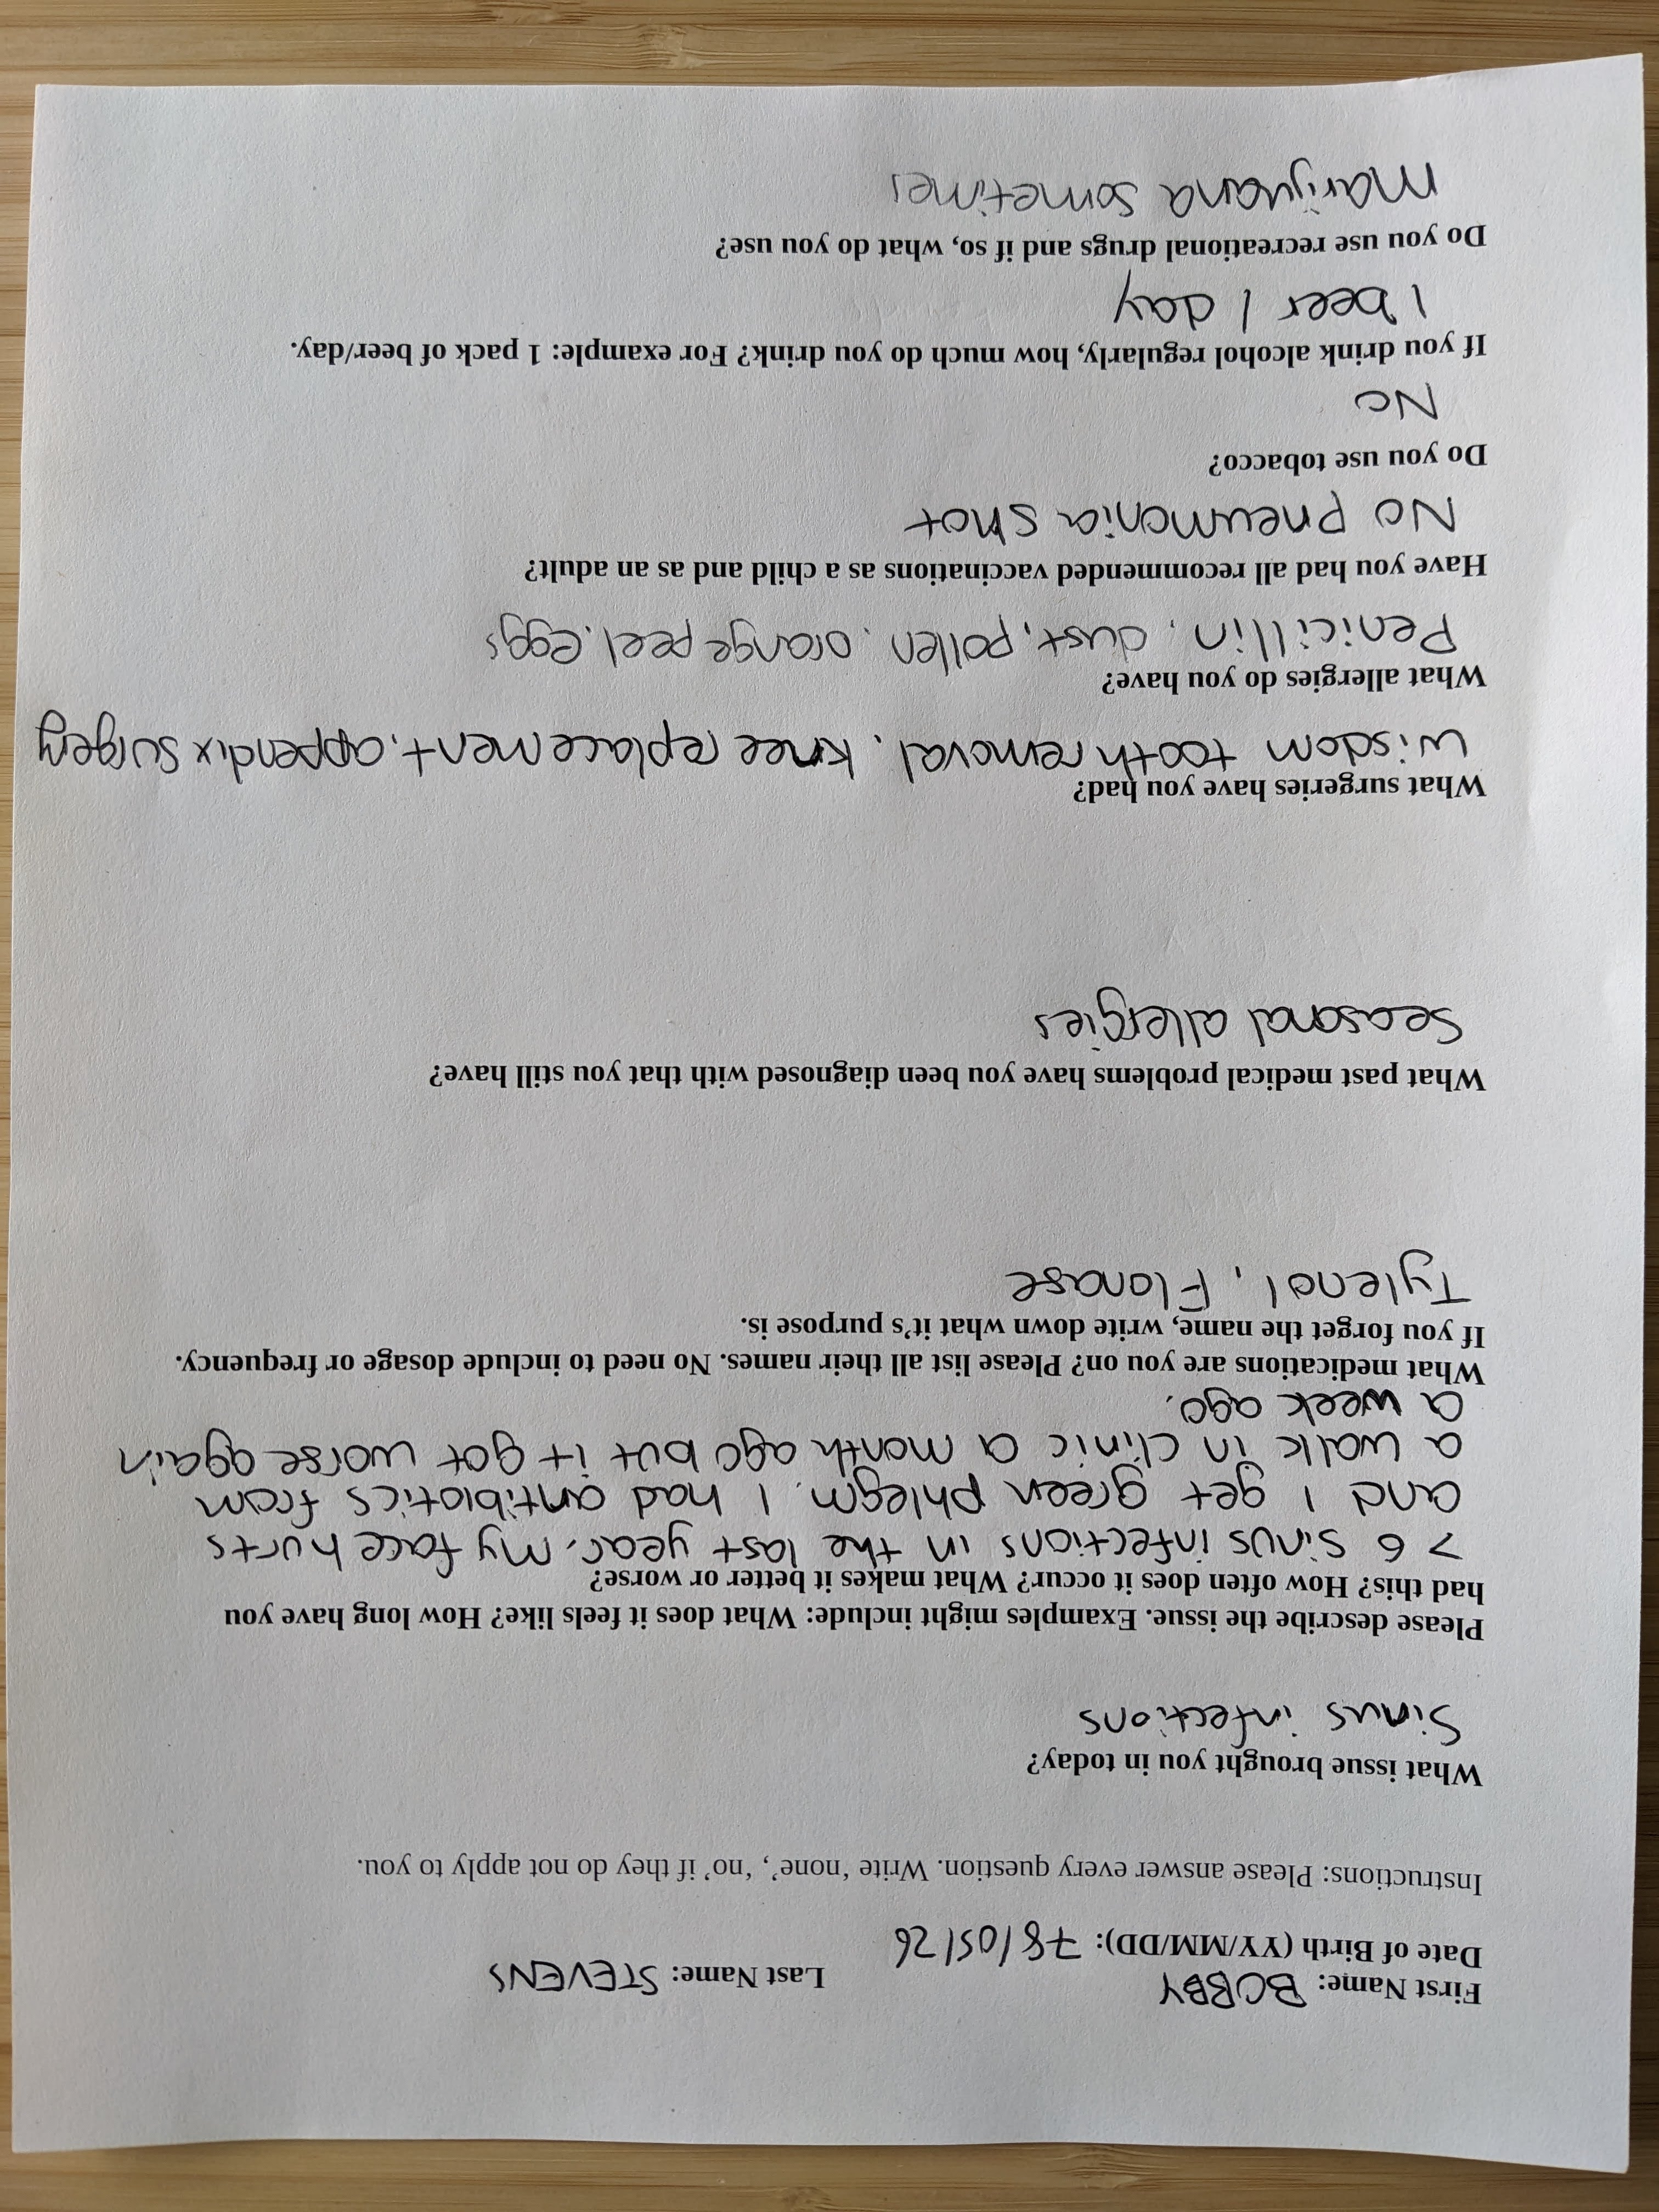 First Name: BOBBY Last Name: STEVENS
Date of Birth (YY/MM/DD): 78/05/26
Instructions: Please answer every question. Write ‘none’, ‘no’ if they do not apply to you.
What issue brought you in today?
Sinus infections
Please describe the issue. Examples might include: What does it feels like? How long have you
had this? How often does it occur? What makes it better or worse?
> 6 sinus infections in the last year. My face hurts
and I get green phlegm. I had antibiotics from
a walk in clinic a month ago but it got worse again
a week ago.
What medications are you on? Please list all their names. No need to include dosage or frequency.
If you forget the name, write down what it’s purpose is.
Tylenol, Flonase
What past medical problems have you been diagnosed with that you still have?
Seasonal allergies
What surgeries have you had?
Wisdom tooth removal, knee replacement, appendix surgery
What allergies do you have?
Penicillin, dust, pollen, orange peel, eggs
Have you had all recommended vaccinations as a child and as an adult?
No pneumonia shot
Do you use tobacco?
No
If you drink alcohol regularly, how much do you drink? For example: 1 pack of beer/day.
1 beer / day
Do you use recreational drugs and if so, what do you use?
Marijuana sometimes